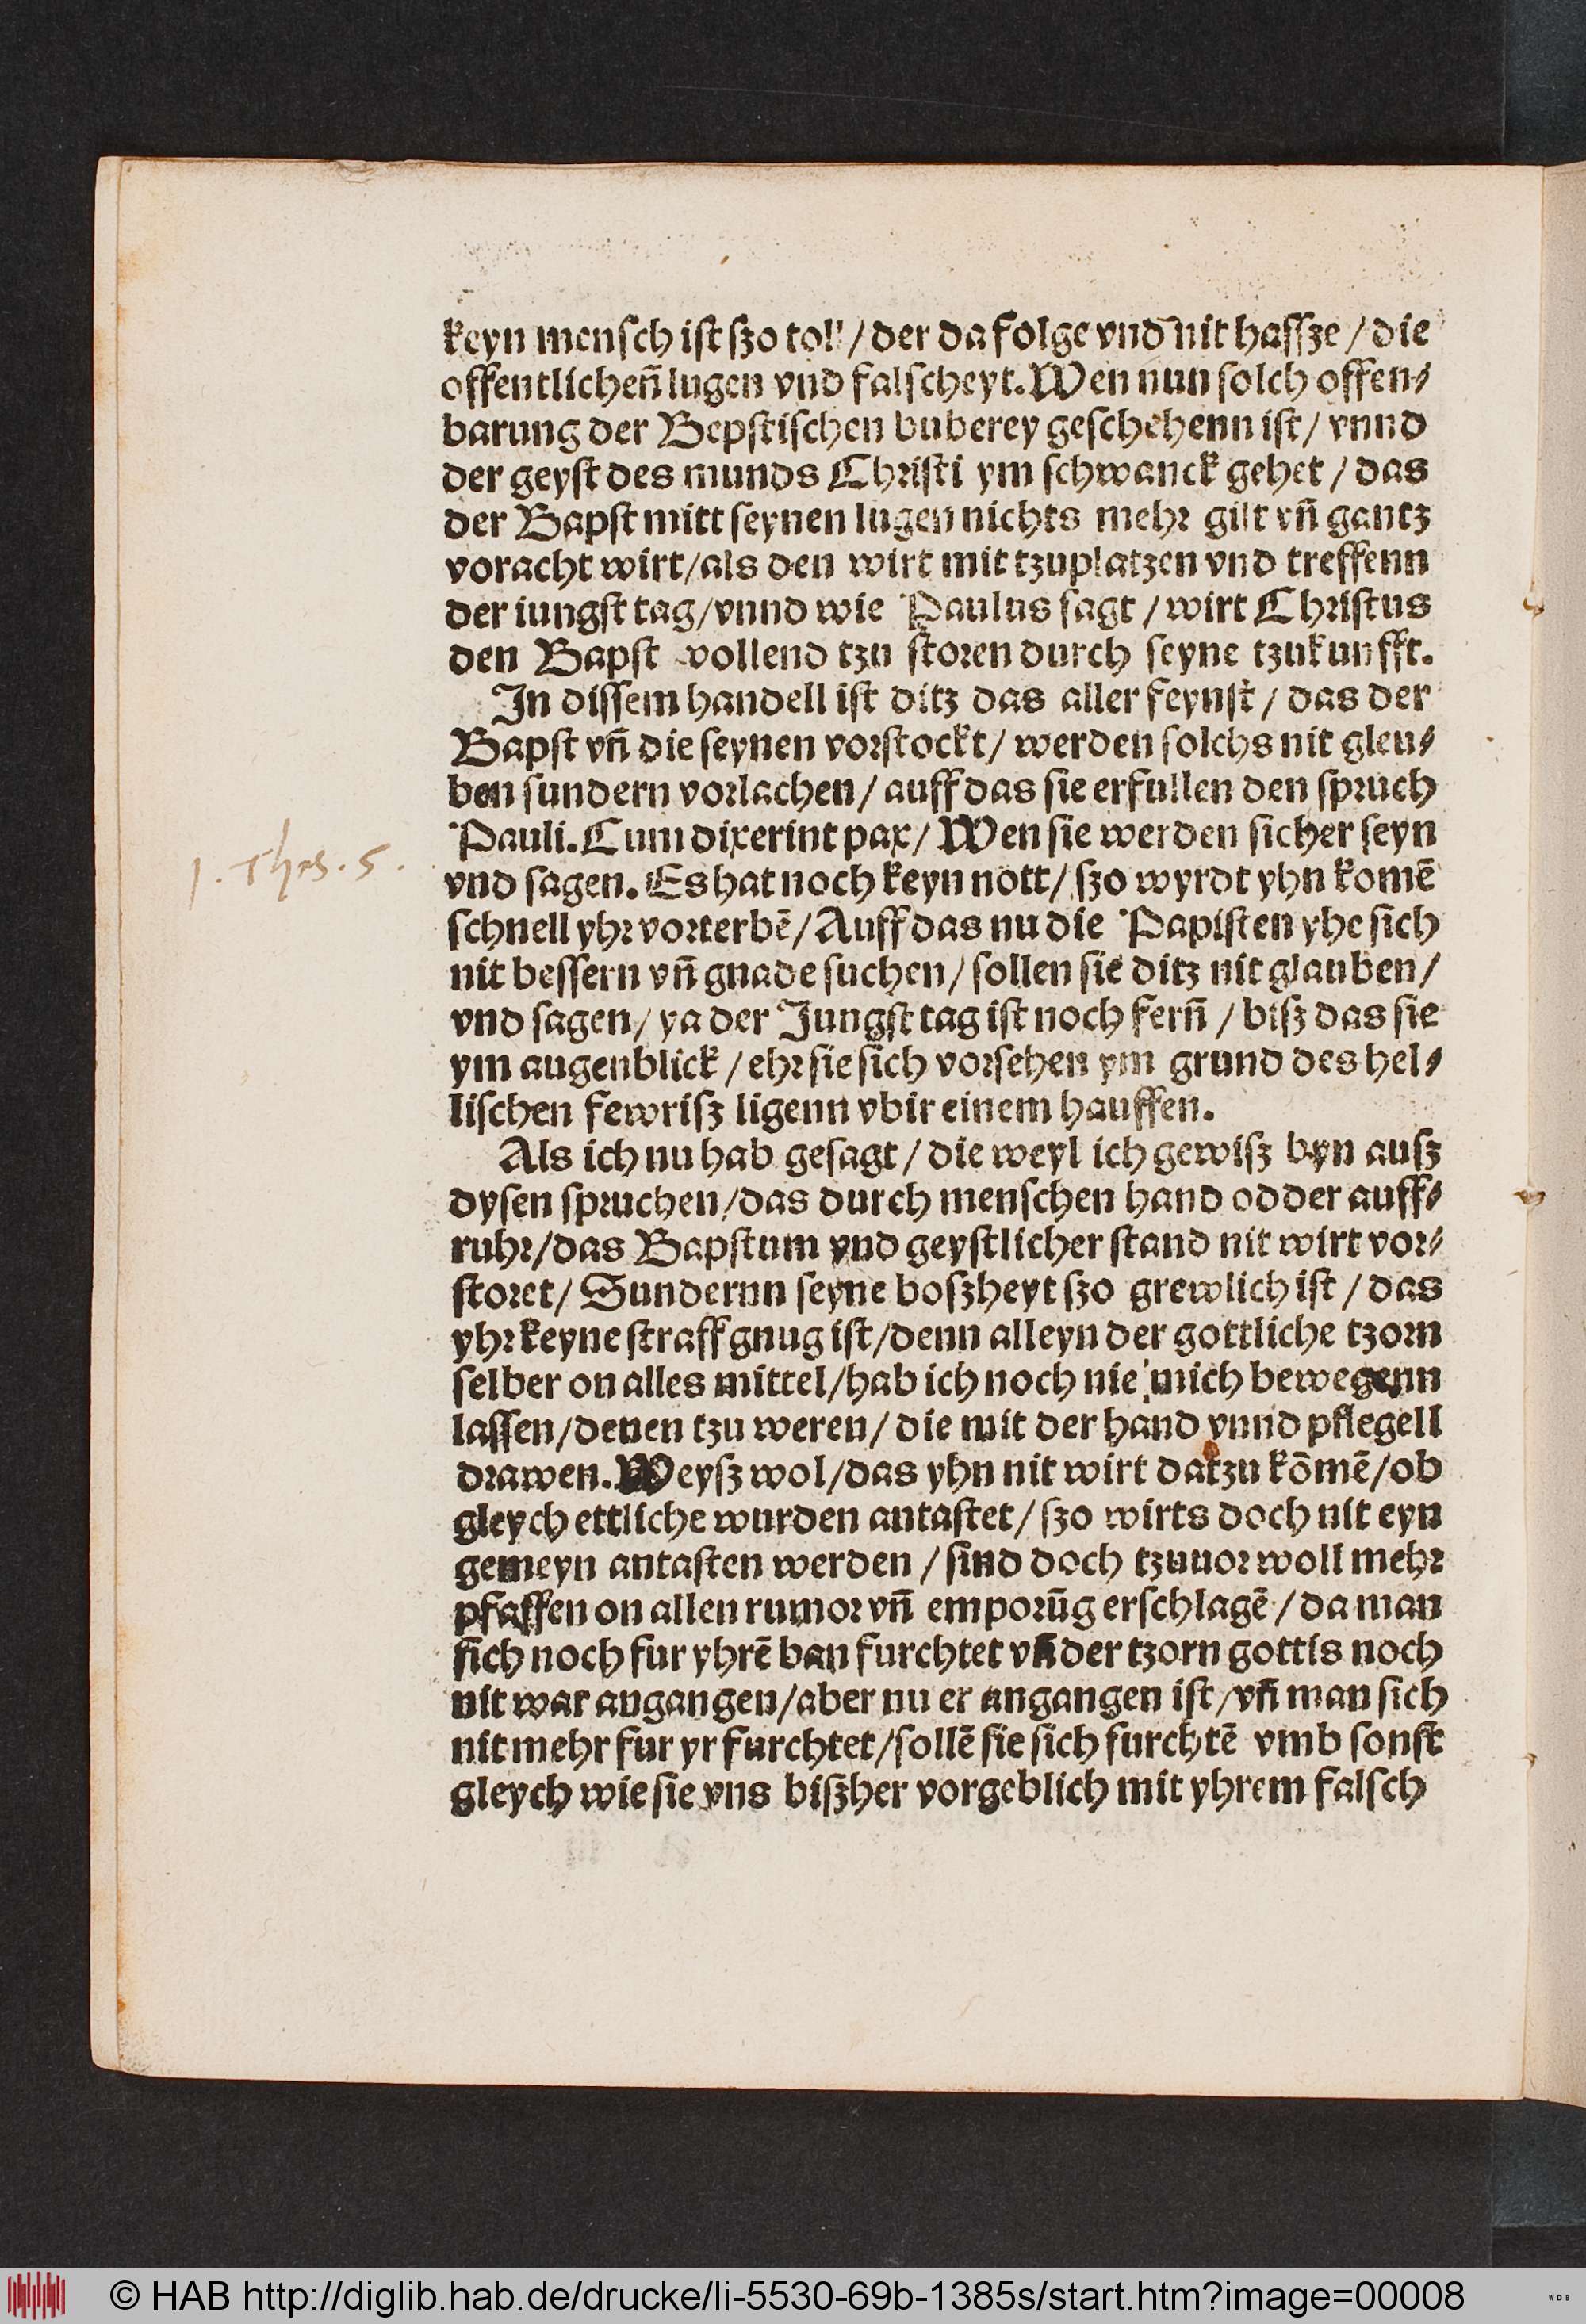 keyn menſch iſt ſzo toll / der da folge vnd nit haſſze / die
offentlichen̄ lugen vnd falſcheyt. Wen nun ſolch offen⸗
barung der Bepſtiſchen buberey geſchehenn iſt / vnnd
der geyſt des munds Chꝛiſti ym ſchwanck gehet / das
der Bapſt mitt ſeynen lugen nichts mehꝛ gilt vn̄ gantz
voracht wirt/als den wirt mit tzuplatzen vnd treffenn
der iungſt tag/vnnd wie Paulus ſagt / wirt Chꝛiſtus
den Bapſt vollend tzu ſtoꝛen durch ſeyne tzukunfft.
In diſſem handell iſt ditz das aller feynſt / das der
Bapſt vn̄ die ſeynen voꝛſtockt / werden ſolchs nit gleu⸗
ben ſundern voꝛlachen / auff das ſie erfullen den ſpꝛuch
Pauli. Cum dixerint pax / Wen ſie werden ſicher ſeyn
vnd ſagen. Es hat noch keyn nott / ſzo wyrdt yhn komē
ſchnell yhꝛ voꝛterbē / Auff das nu die Papiſten yhe ſich
nit beſſern vn̄ gnade ſuchen / ſollen ſie ditz nit glauben /
vnd ſagen / ya der Jungſt tag iſt noch fern̄ / biſz das ſie
ym augenblick / ehꝛ ſie ſich voꝛſehen ym grund des hel⸗
liſchen fewriſz ligenn vbir einem hauffen.
Als ich nu hab geſagt / die weyl ich gewiſz byn auſz
dyſen ſpꝛuchen/das durch menſchen hand odder auff⸗
ruhꝛ/das Bapſtum vnd geyſtlicher ſtand nit wirt voꝛ⸗
ſtoꝛet / Sundernn ſeyne boſzheyt ſzo grewlich iſt / das
yhꝛ keyne ſtraff gnug iſt/denn alleyn der gottliche tzoꝛn
ſelber on alles mittel/hab ich noch nie mich bewegenn
laſſen/denen tzu weren / die mit der hand vnnd pflegell
dꝛawen. Weyſz wol/das yhn nit wirt datzu kōmē/ob
gleych ettliche wurden antaſtet / ſzo wirts doch nit eyn
gemeyn antaſten werden / ſind doch tzuuoꝛ woll mehꝛ
pfaffen on allen rumoꝛ vn̄ empoꝛūg erſchlagē / da man
ſich noch fur yhrē ban furchtet vn̄ der tzoꝛn gottis noch
nit war angangen/aber nu er angangen iſt / vn̄ man ſich
nit mehr fur yr furchtet/ſollē ſie ſich furchtē vmb ſonſt
gleych wie ſie vns biſzher vorgeblich mit yhrem falſch
1. Thes. 5.
© HAB http://diglib.hab.de/drucke/li-5530-69b-1385s/start.htm?image=00008
WDB